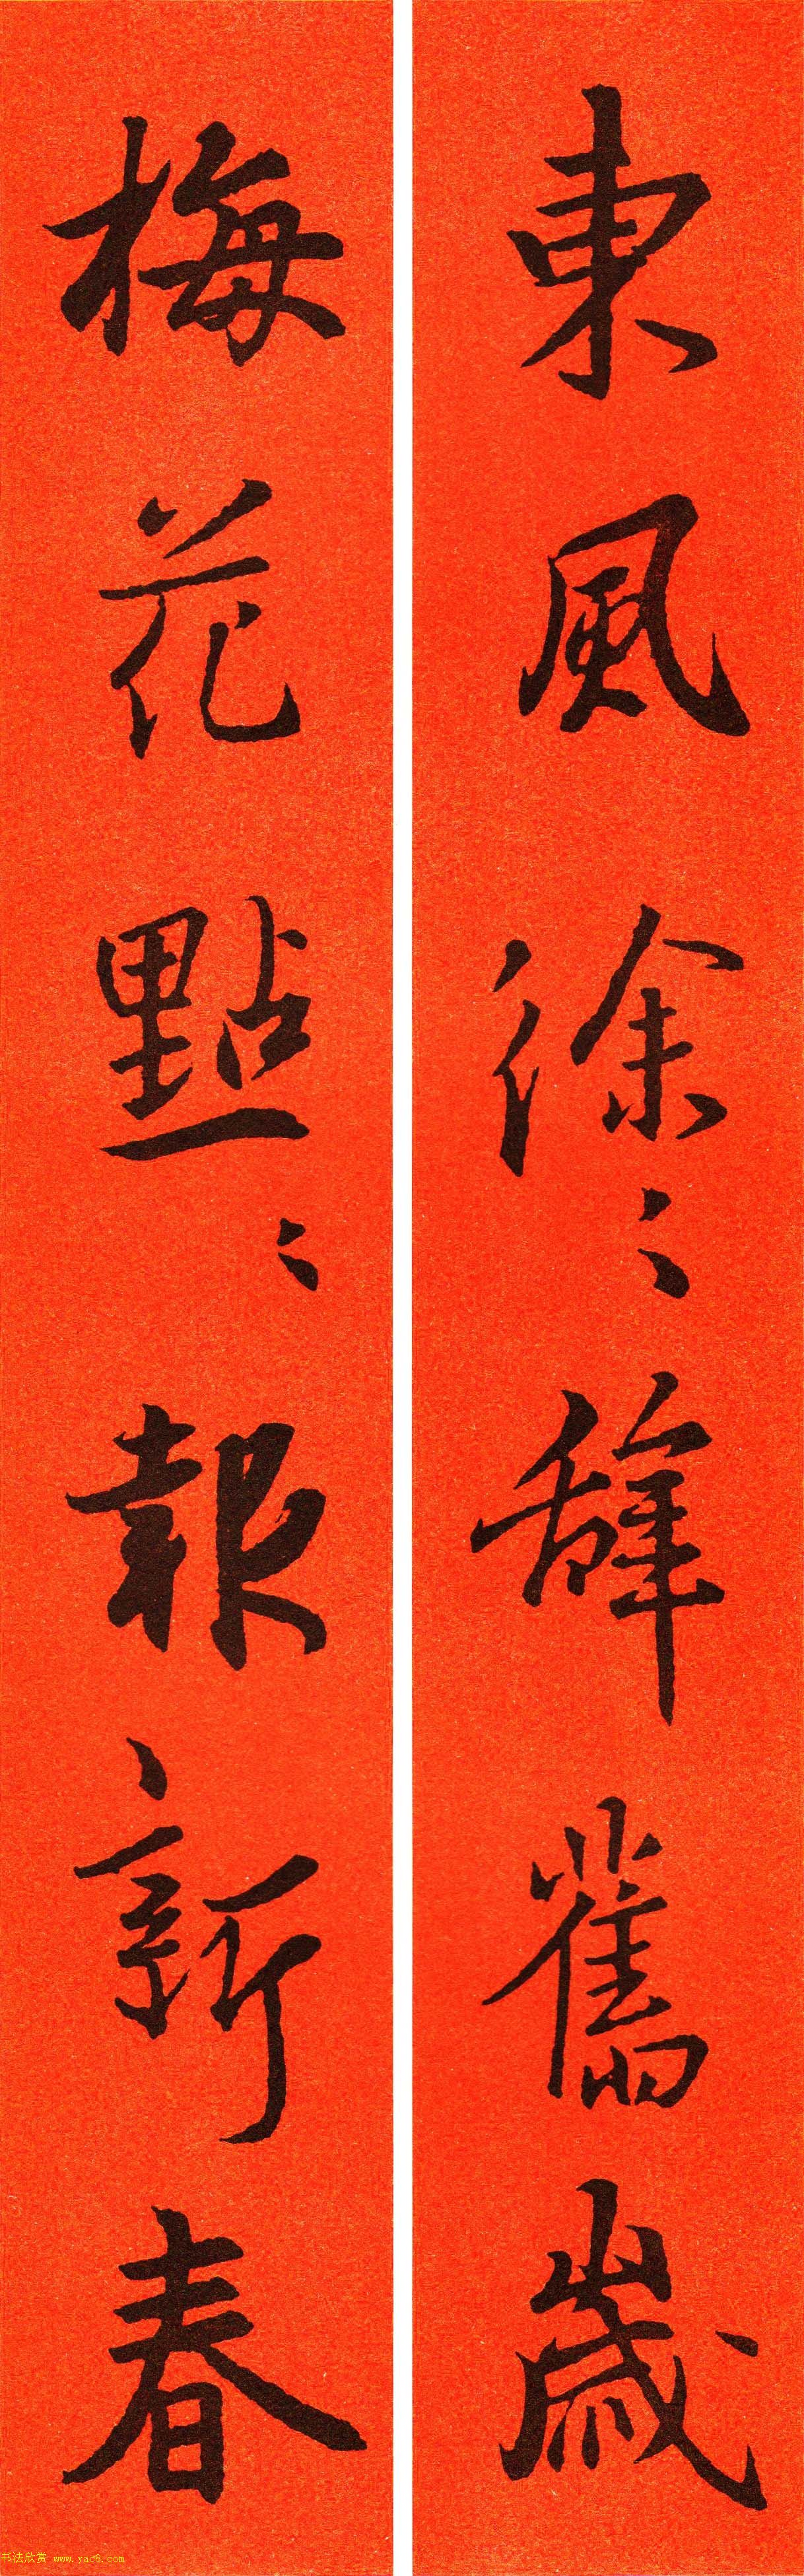 東風徐〻辭舊歲
梅花點〻報新春
书法欣赏 www.yac8.com